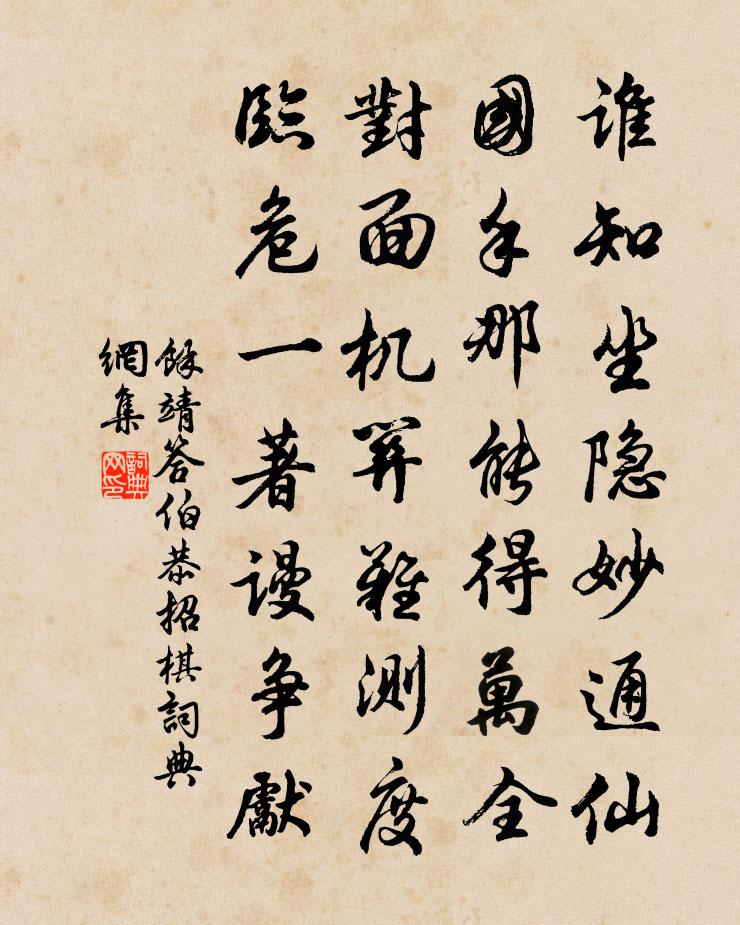 谁知坐隐妙通仙
國手那能得萬全
對面机關難測度
臨危一著謾争獻
餘靖答伯恭招棋詞典
網集
詞典网印